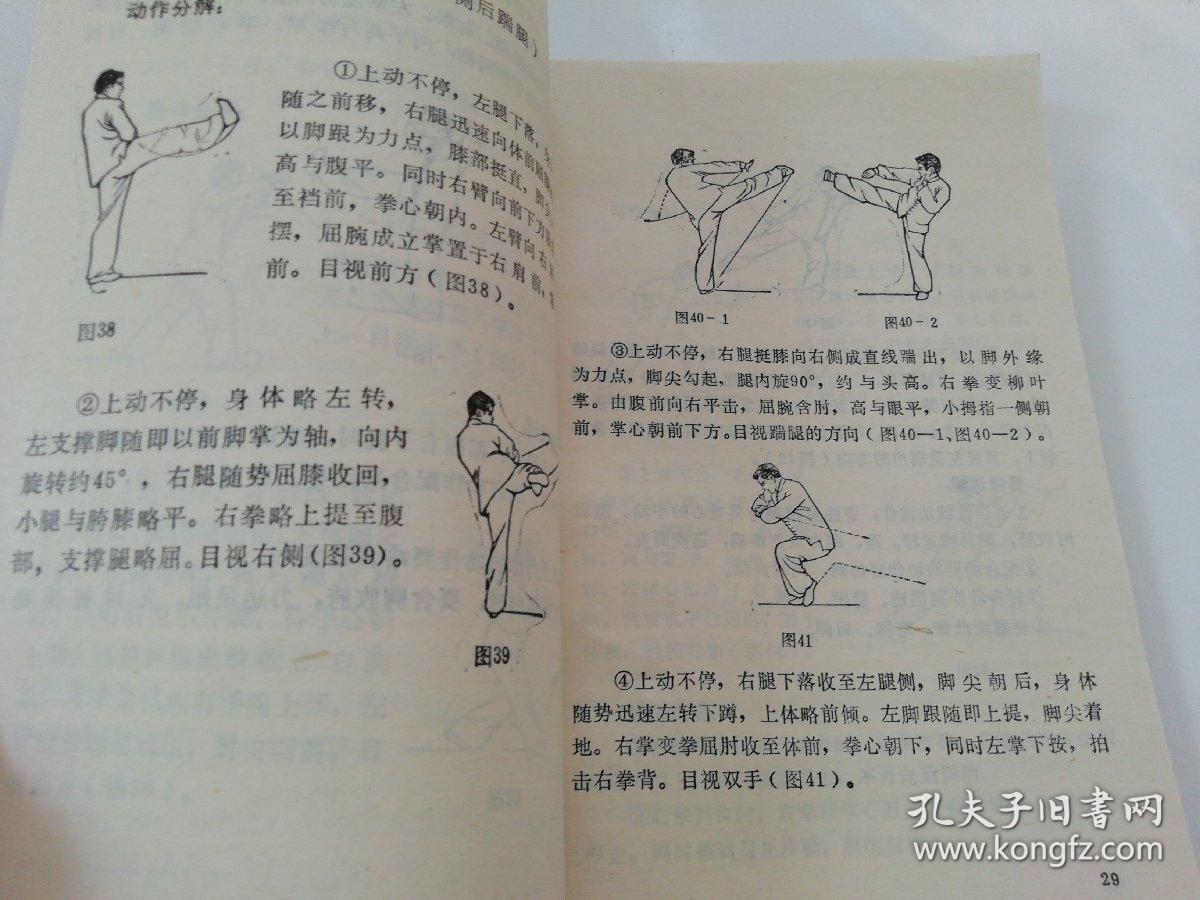 侧后踹腿）
动作分解：
①上动不停，左腿下落，
随之前移，右腿迅速向体前
以脚跟为力点，膝部挺直，脚尖
高与腹平。同时右臂向前下方
至裆前，拳心朝内。左臂向右
摆，屈腕成立掌置于右肩前，
前。目视前方（图38）。
图38
②上动不停，身体略左转，
左支撑脚随即以前脚掌为轴，向内
旋转约45°，右腿随势屈膝收回，
小腿与胯膝略平。右拳略上提至腹
部，支撑腿略屈。目视右侧（图39）。
图39
图40－1
图40－2
③上动不停，右腿挺膝向右侧成直线踹出，以脚外缘
为力点，脚尖勾起，腿内旋90°，约与头高。右拳变柳叶
掌。由腹前向右平击，屈腕含肘，高与眼平，小拇指一侧朝
前，掌心朝前下方。目视踹腿的方向（图40—1、图40—2）。
图41
④上动不停，右腿下落收至左腿侧，脚尖朝后，身体
随势迅速左转下蹲，上体略前倾。左脚跟随即上提，脚尖着
地。右掌变拳屈肘收至体前，拳心朝下，同时左掌下按，拍
击右拳背。目视双手（图41）。
孔夫子旧书网
www.kongfz.com
29